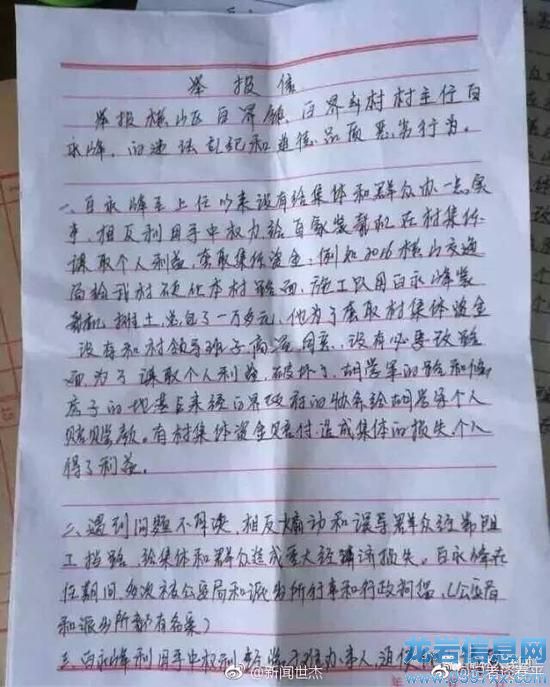 举报信
举报横山区白界镇、白界乡村村主任白
永峰,的违法乱纪和道德品质恶劣行为。
一、白永峰至上任以来没有给集体和群众办一点实
事,相反利用手中权力给自家装载机在村集体
谋取个人利益,套取集体资金,例如2016横山交通
局给我村硬化本村路面,施工队用白永峰装
载机推土,总包了一万多元,他为了套取村集体资金
没有和村领导班子商流同意,没有必要改路
面为了谋取个人利益,破坏了,胡学军的路和
房子的地基后来经白界政府的协条给胡学军个人
赔款。有村集体资金赔付,造成集体的损失,个人
得了利益。
二、遇到问题不解决,相反煽动和误导群众经常阻
工挡路,给集体和群众造成重大经济损失。白永峰在
任期间,多次被公安局和派出所行事和行政拘留,(公安局
和派出所都有名案)
三、白永峰利用手中权利经常不给办事人,
@新闻世杰
龙岩信息网